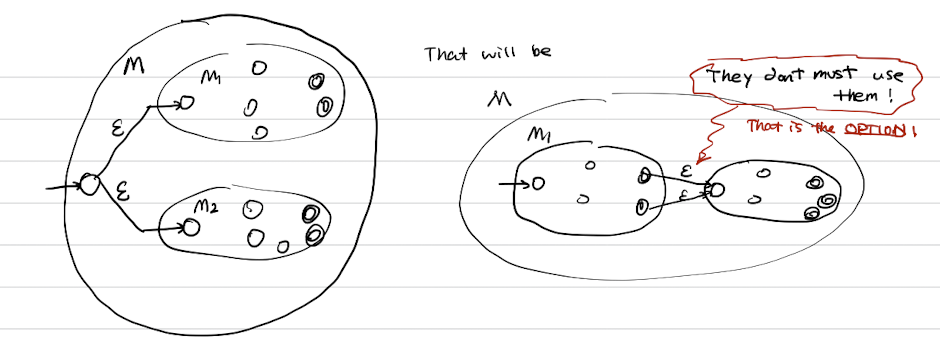 M
M₁
ε
ε
M₂
That will be
They don't must use
them!
That is the OPTION!
M
M₁
ε
ε